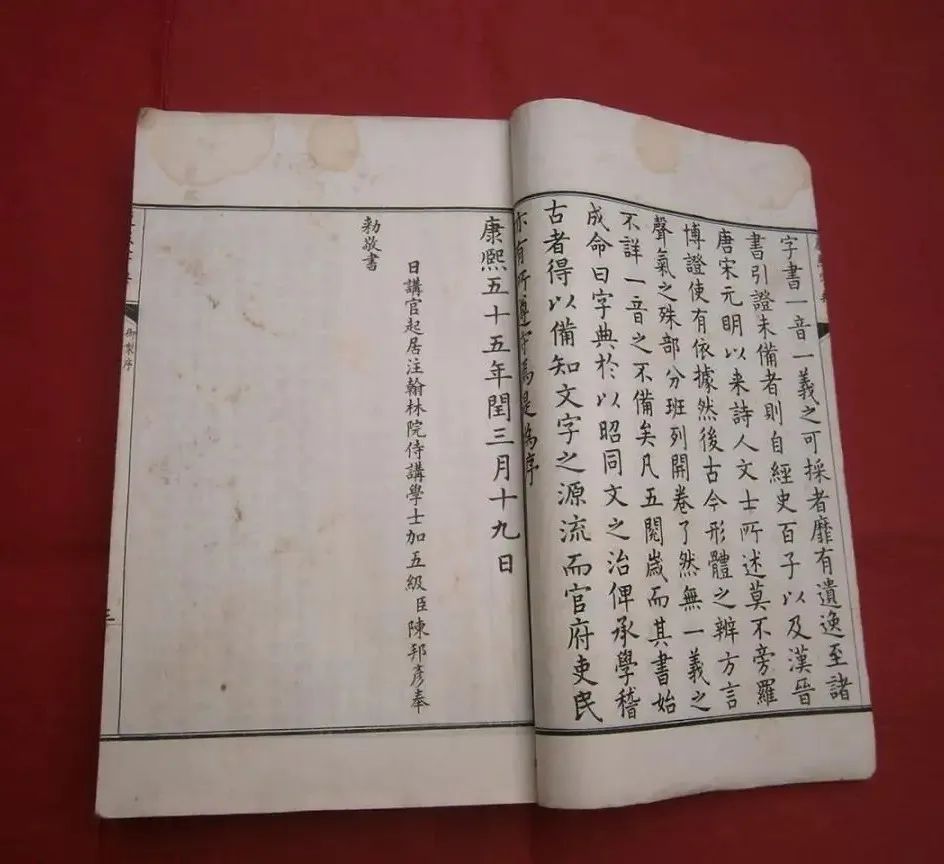 字書一音一義之可採者靡有遺逸至諸
書引證未備者則自經史百子以及漢晉
唐宋元明以来詩人文士所述莫不旁羅
博證使有依據然後古今形體之辨方言
聲氣之殊部分班列開卷了然無一義之
不詳一音之不備矣凡五閱歲而其書始
成命曰字典於以昭同文之治俾承學稽
古者得以備知文字之源流而官府吏民
亦有所遵守焉是為序
康熙五十五年閏三月十九日
日講官起居注翰林院侍講學士加五級臣陳邦彥奉
勅敬書
御製序
三